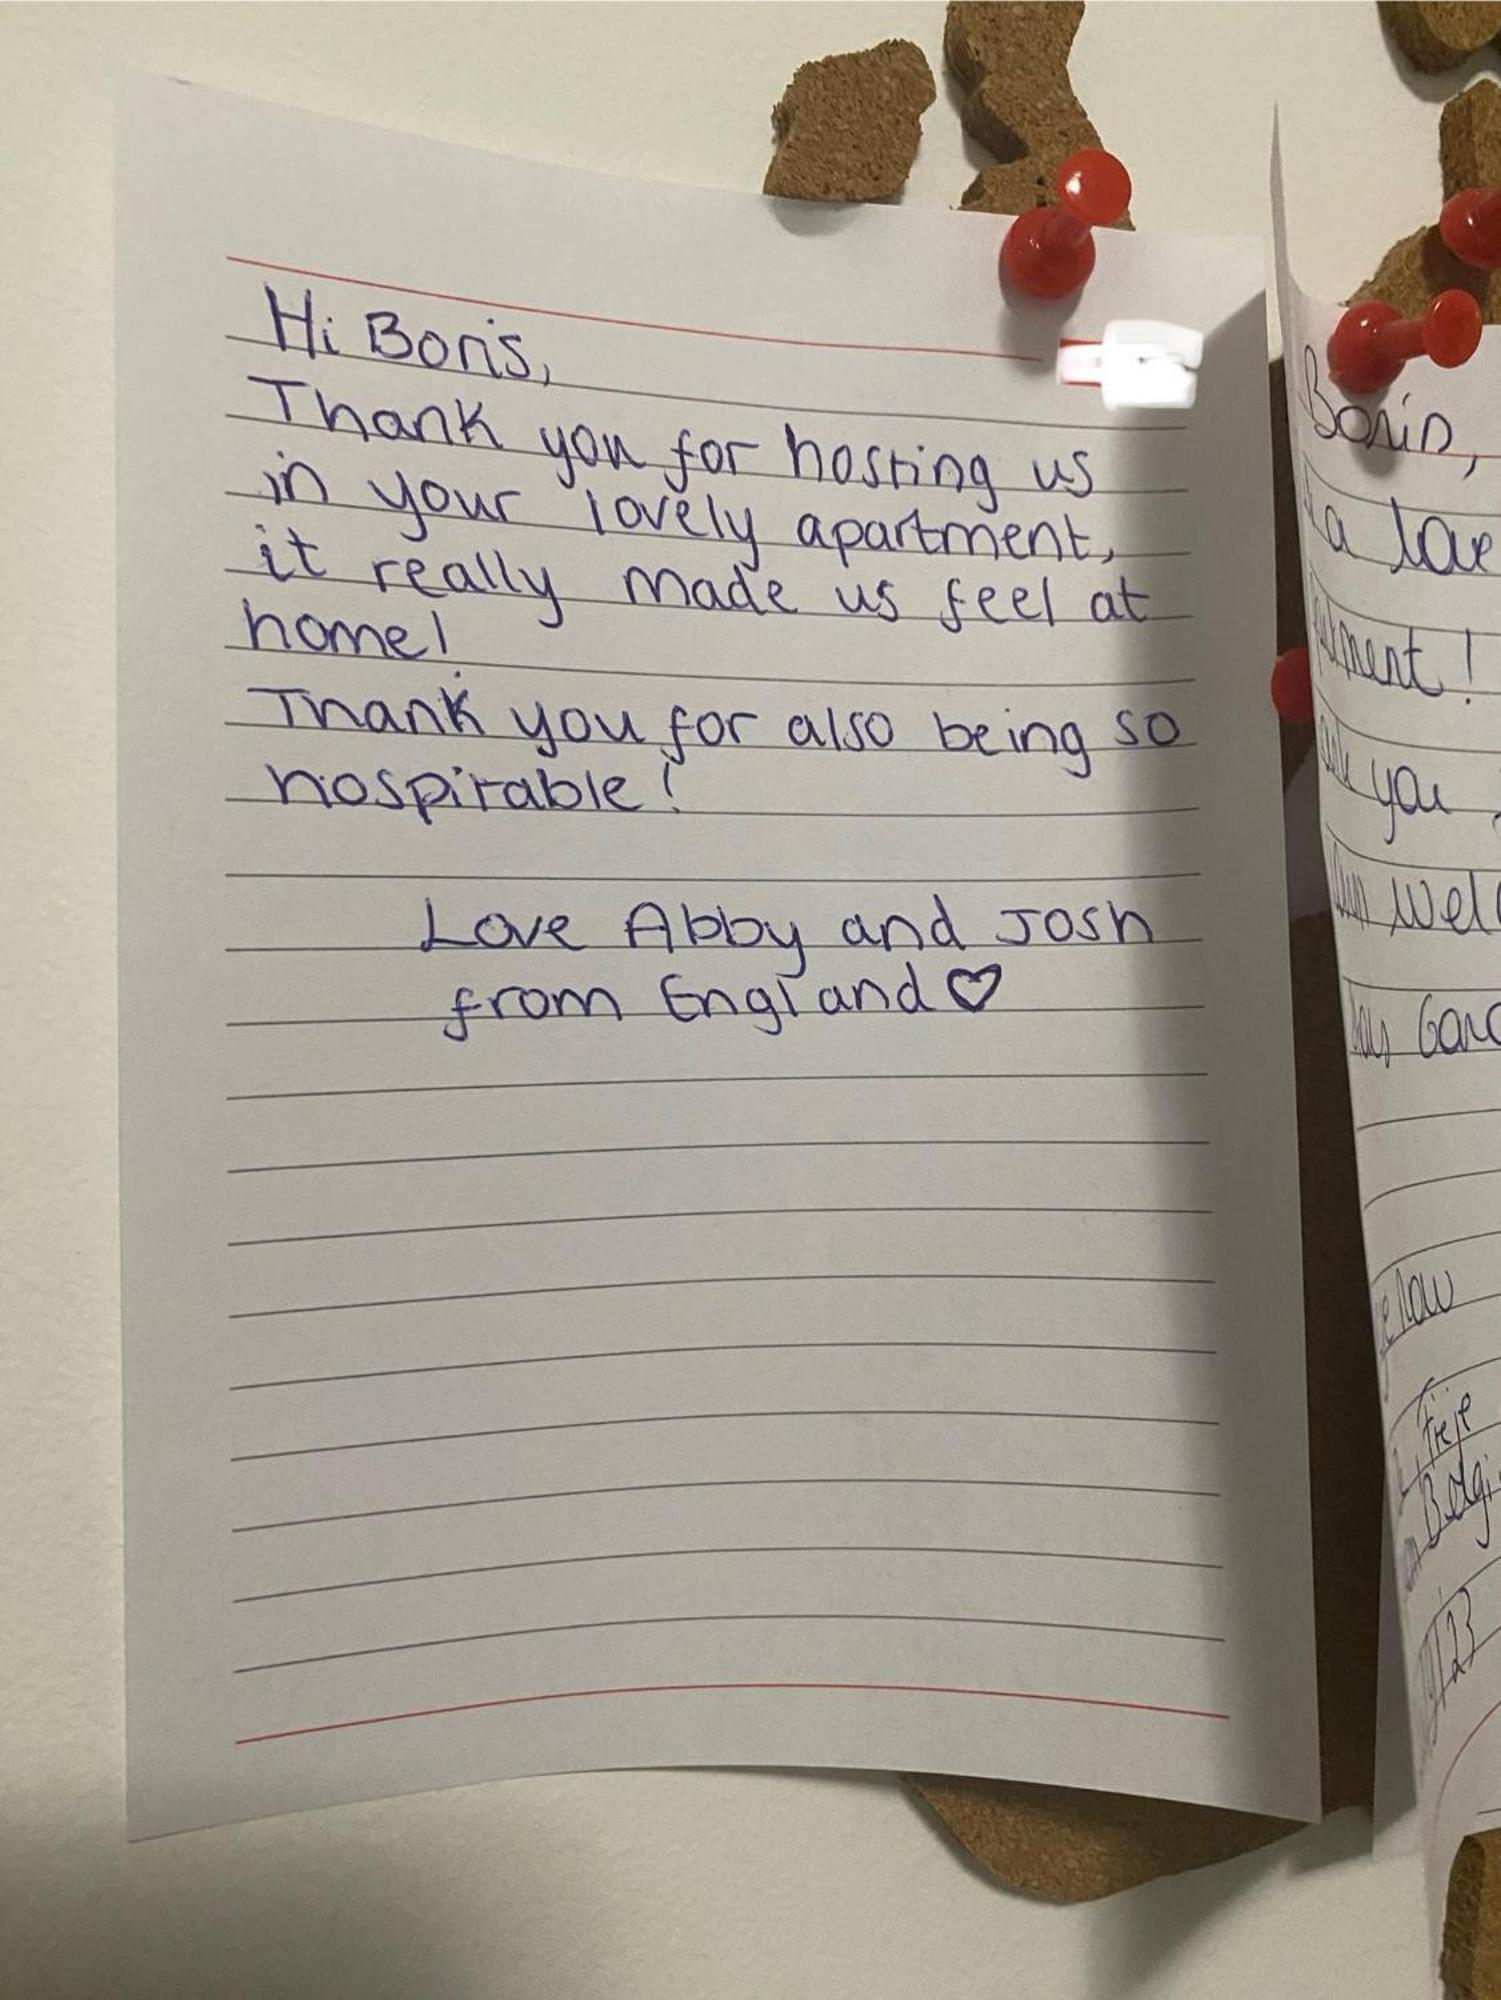 Hi Boris,
Thank you for hosting us
in your lovely apartment,
it really made us feel at
home!
Thank you for also being so
hospitable!
Love Abby and Josh
from England ♡
Boris,
a
you
Freje
/23